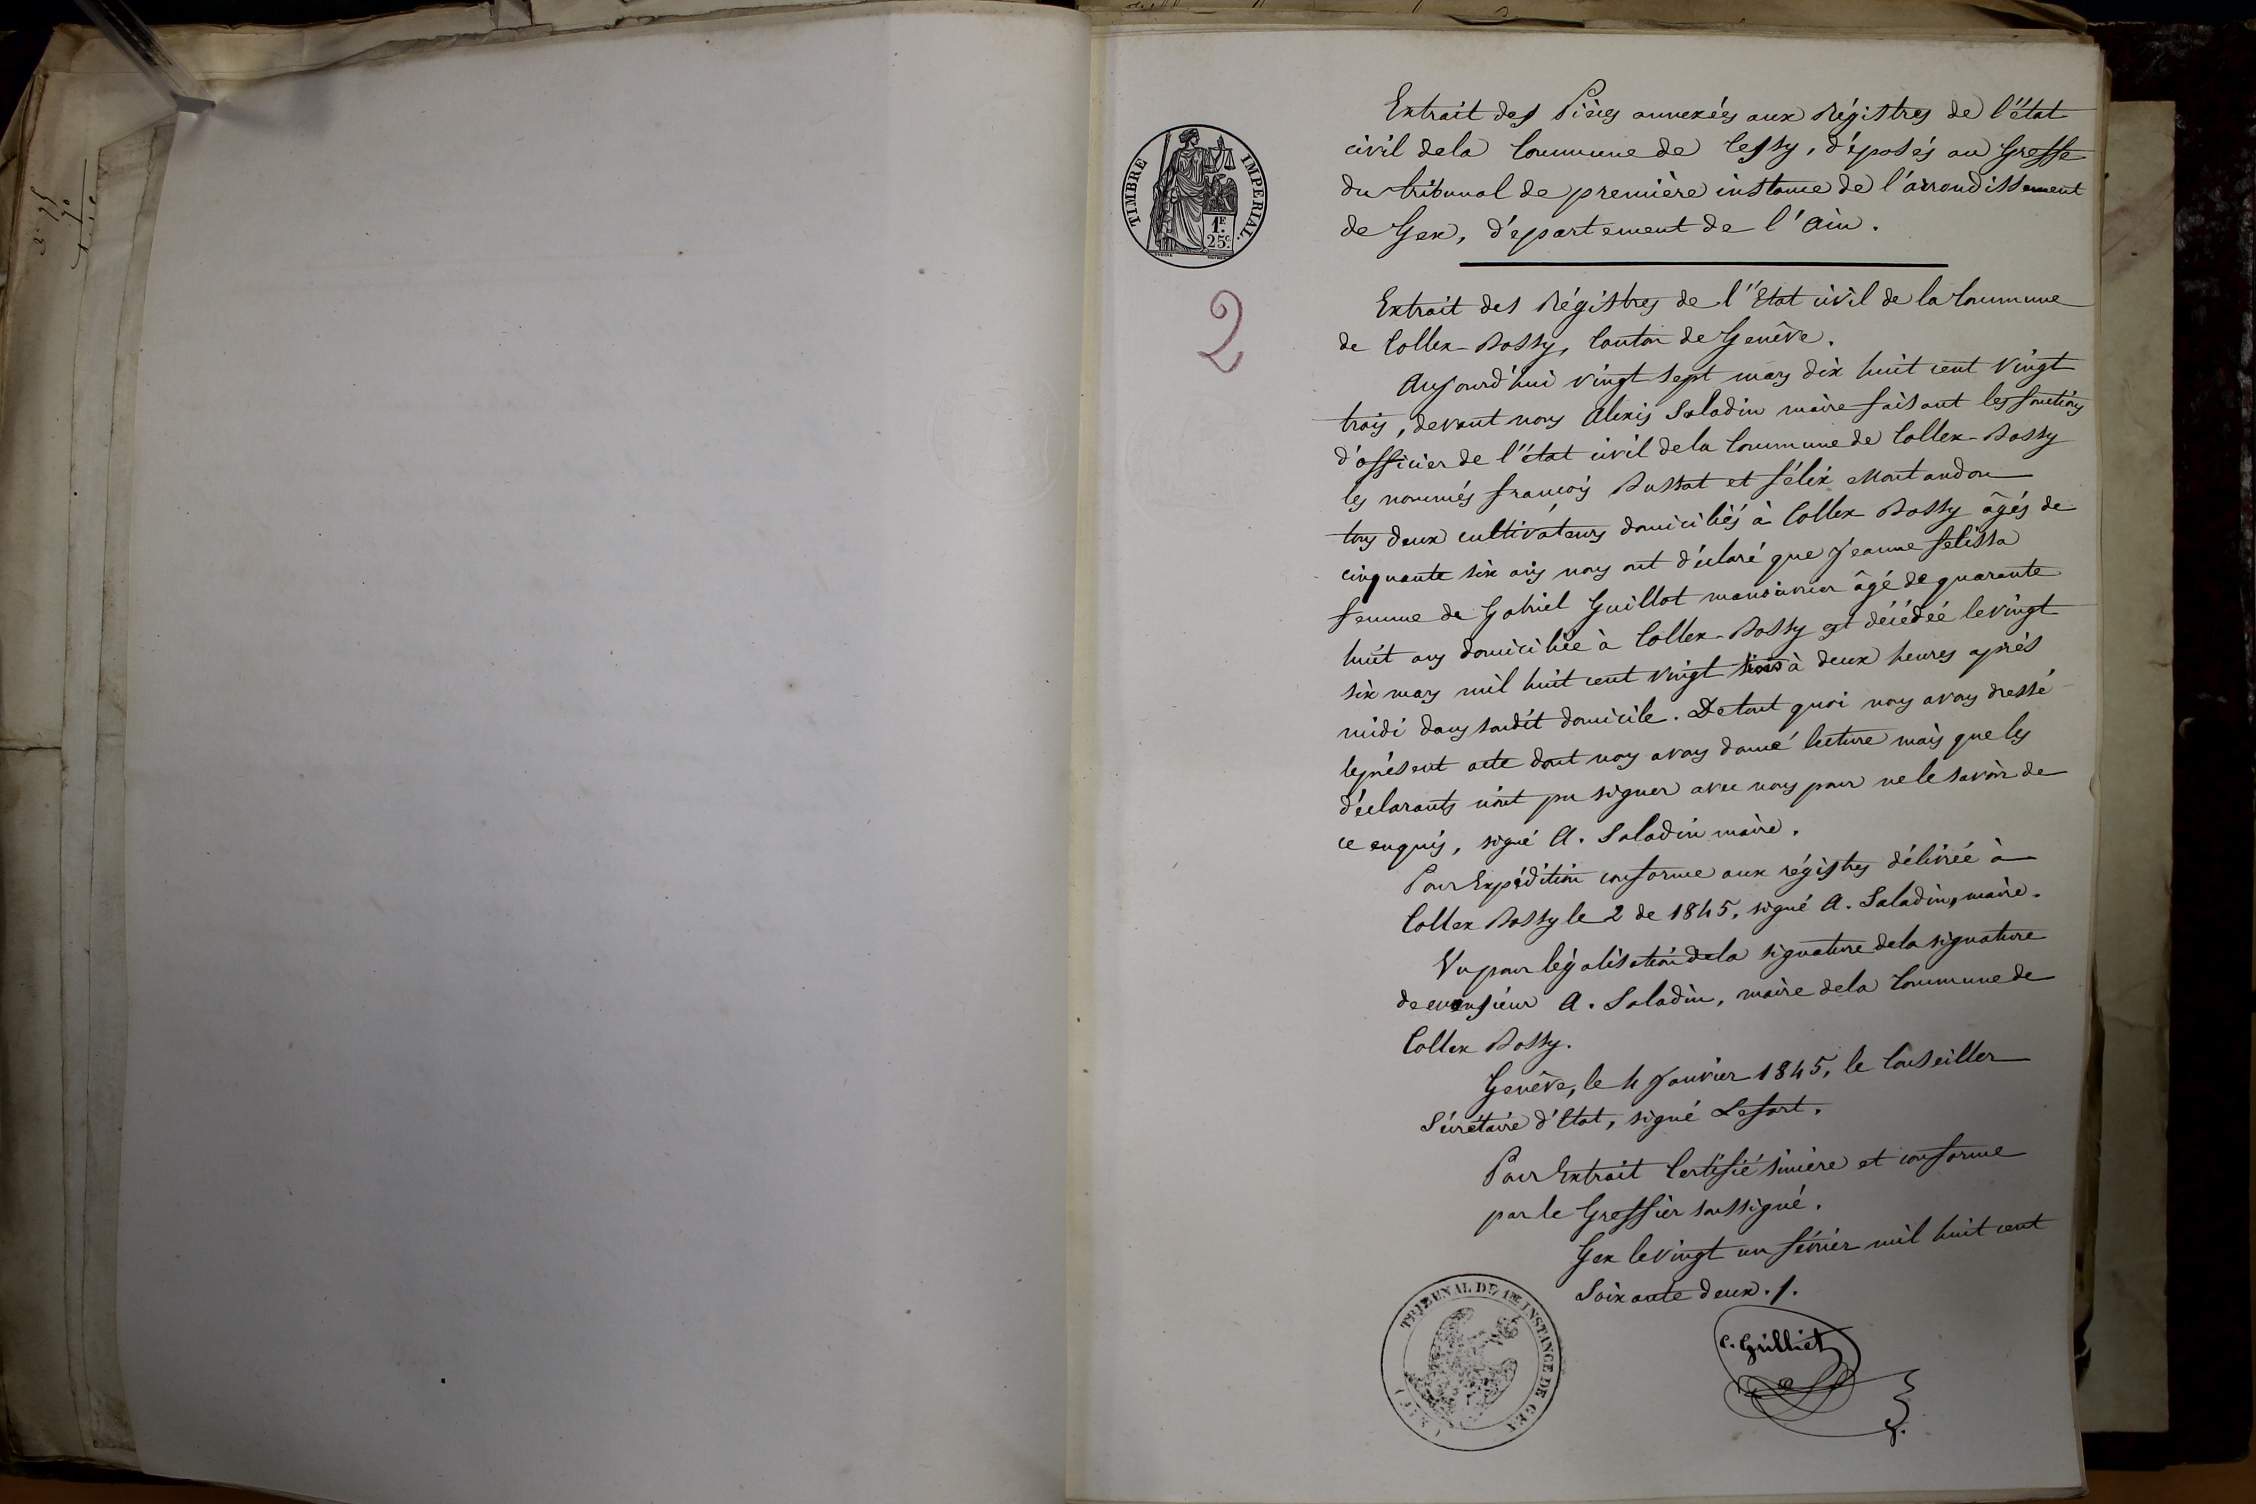 Extrait des Pièces annexées aux Régistres de l'état
civil de la Commune de Cessy, déposés au Greffe
du tribunal de première instance de l'arrondissement
de Gex, département de l'Ain.
TIMBRE IMPERIAL.
1F.
25c.
2
Extrait des Régistres de l'Etat civil de la Commune
de Collex-Bossy, Canton de Genêve.
Aujourd'hui vingt sept mars dix huit cent vingt
trois, devant nous Alexis Saladin maire faisant les fonctions
d'officier de l'état civil de la Commune de Collex-Bossy
les nommés françois Bussat et félix Montandon
tous deux cultivateurs domiciliés à Collex Bossy âgés de
cinquante six ans nous ont déclaré que Jeanne felissa
femme de Gabriel Guillot manœuvrier âgé de quarante
huit ans domiciliée à Collex-Bossy est décédée le vingt
six mars mil huit cent vingt trois à deux heures après
midi dans soudit domicile. De tout quoi nous avons dressé
le présent acte dont nous avons donné lecture mais que les
déclarants n'ont pu signer avec nous pour ne le savoir de
ce enquis, signé A. Saladin maire.
Pour Expédition conforme aux régistres délivrée à
Collex Bossy le 2 de 1845, signé A. Saladin, maire.
Vu pour légalisation de la signature de la signature
de monsieur A. Saladin, maire de la Commune de
Collex Bossy.
Genêve, le 4 Janvier 1845, le Conseiller
Sécrétaire d'Etat, signé Lefort.
Pour Extrait Certifié sincère et conforme
par le Greffier soussigné.
Gex le vingt un février mil huit cent
Soixante deux./.
TRIBUNAL DE 1RE INSTANCE DE GEX
C. Grilliet